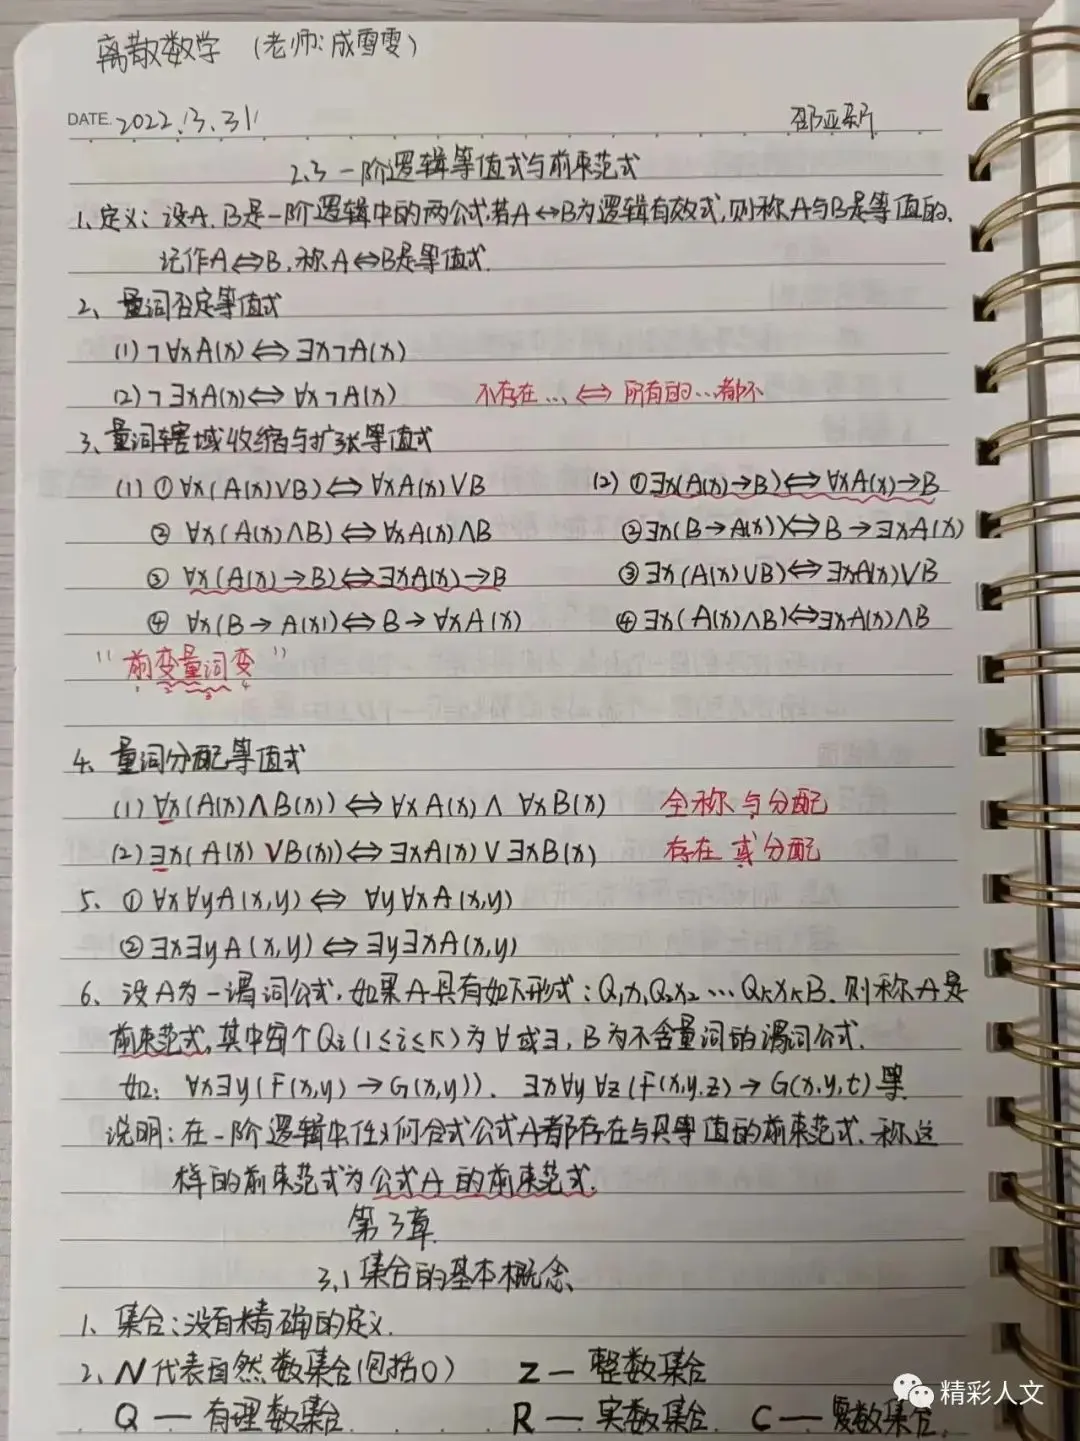 离散数学 (老师:成雪雯)
DATE. 2022.3.31 邵亚新
2.3 一阶逻辑等值式与前束范式
1、定义：设A、B是一阶逻辑中的两公式,若A↔B为逻辑有效式,则称A与B是等值的.
记作A⇔B,称A⇔B是等值式.
2、量词否定等值式
(1) ¬∀xA(x)⇔∃x¬A(x)
(2) ¬∃xA(x)⇔∀x¬A(x) 不存在…⇔所有的…都不
3、量词辖域收缩与扩张等值式
(1) ① ∀x(A(x)∨B)⇔∀xA(x)∨B (2) ①∃x(A(x)→B)⇔∀xA(x)→B
② ∀x(A(x)∧B)⇔∀xA(x)∧B ②∃x(B→A(x))⇔B→∃xA(x)
③ ∀x(A(x)→B)⇔∃xA(x)→B ③∃x(A(x)∨B)⇔∃xA(x)∨B
④ ∀x(B→A(x))⇔B→∀xA(x) ④∃x(A(x)∧B)⇔∃xA(x)∧B
"前变量词变"
1 2 3 4
4、量词分配等值式
(1) ∀x(A(x)∧B(x))⇔∀xA(x)∧∀xB(x) 全称与分配
(2) ∃x(A(x)∨B(x))⇔∃xA(x)∨∃xB(x) 存在或分配
5、① ∀x∀yA(x,y)⇔∀y∀xA(x,y)
② ∃x∃yA(x,y)⇔∃y∃xA(x,y)
6、设A为一谓词公式,如果A具有如下形式：Q₁x₁Q₂x₂…QₖxₖB.则称A是
前束范式,其中每个Qi(1≤i≤k)为∀或∃,B为不含量词的谓词公式.
如：∀x∃y(F(x,y)→G(x,y))、∃x∀y∀z(F(x,y,z)→G(x,y,t)等
说明：在一阶逻辑中任何合式公式A都存在与其等值的前束范式.称这
样的前束范式为公式A的前束范式.
第3章
3.1 集合的基本概念
1、集合：没有精确的定义.
2、N代表自然数集合(包括0) Z—整数集合
Q—有理数集合 R—实数集合 C—复数集合.
精彩人文